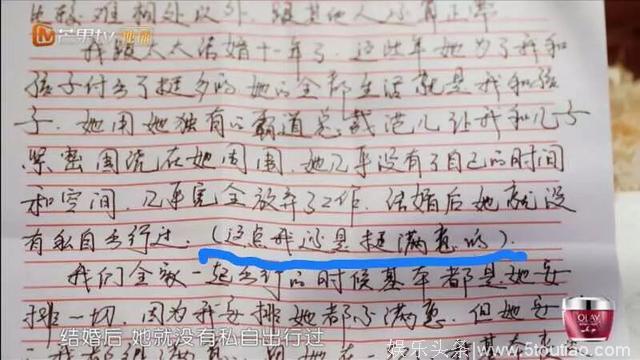 芒果tv 独播
难相处以外，跟其他人没有正常
我跟太太结婚十一年了，这些年她为了我和
孩子付出了挺多的，她的全部生活就是我和孩
子，她用她独有的霸道总裁范儿让我和儿子
紧密围绕在她周围，她几乎没有了自己的时间
和空间，几乎完全放弃了工作，结婚后她就没
有私自出行过，（这点我还是挺满意的）。
我们全家一起出行的时候基本都是她安
排一切，因为我安排她都不满意，但她安
结婚后 她就没有私自出行过
OLAY
娱乐头条 /www.5toutiao.com